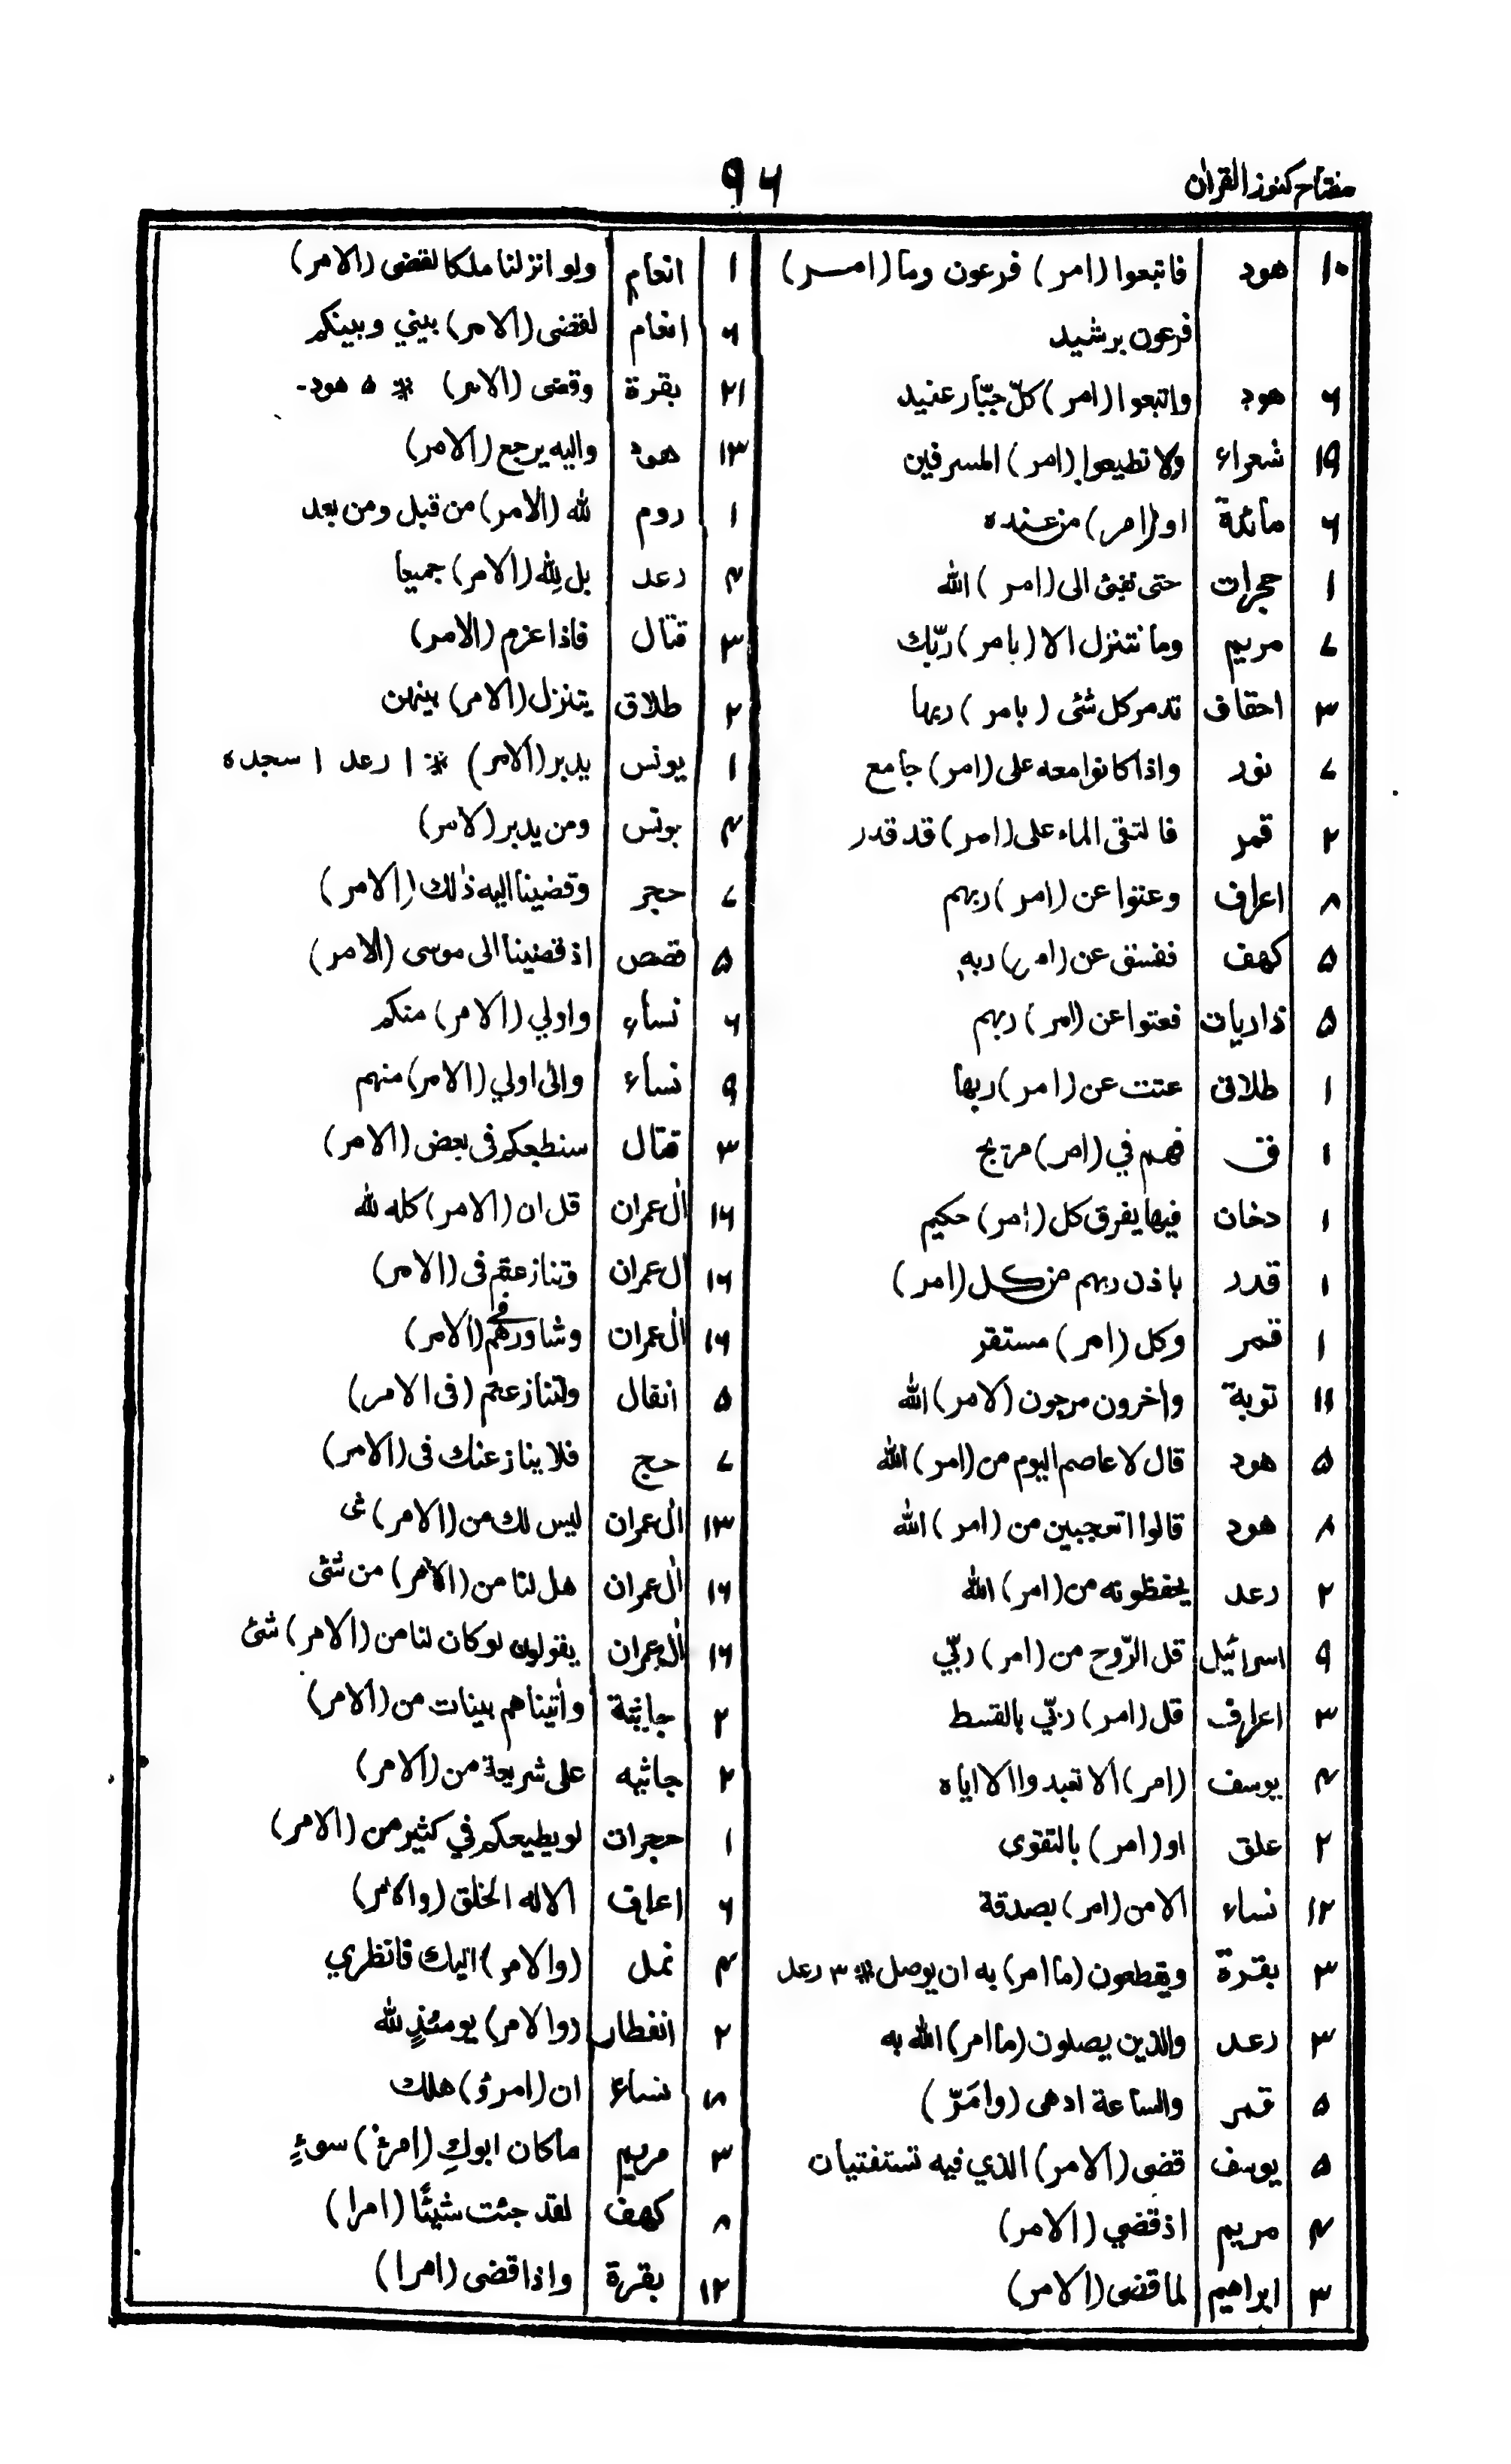 مفتاح كنوز القرآن
٩٦
١٠ هود فاتبعوا (امر) فرعون وما (امر)
فرعون برشيد
٦ هود واتبعوا (امر) كلّ جبّار عنيد
١٩ شعراء ولا تطيعوا (امر) المسرفين
٦ مائدة او (امر) من عنده
١ حجرات حتى تفئ الى (امر) الله
٧ مريم وما نتنزل الا (بامر) ربّك
٣ احقاف تدمر كل شئ (بامر) ربها
٧ نور واذا كانوا معه على (امر) جامع
٢ قمر فالتقى الماء على (امر) قد قدر
٨ اعراف وعتوا عن (امر) ربهم
٥ كهف ففسق عن (امر) ربه
٥ ذاريات فعتوا عن (امر) ربهم
١ طلاق عتت عن (امر) ربها
١ ق فهم في (امر) مريج
١ دخان فيها يفرق كل (امر) حكيم
١ قدر باذن ربهم من كل (امر)
١ قمر وكل (امر) مستقر
١١ توبة واخرون مرجون (لامر) الله
٥ هود قال لا عاصم اليوم من (امر) الله
٨ هود قالوا اتعجبين من (امر) الله
٢ رعد يحفظونه من (امر) الله
٩ اسرائيل قل الرّوح من (امر) ربّي
٣ اعراف قل (امر) ربّي بالقسط
٤ يوسف (امر) الا تعبدوا الا اياه
٢ علق او (امر) بالتقوى
١٢ نساء الا من (امر) بصدقة
٣ بقرة ويقطعون (ما امر) به ان يوصل ※ ٣ رعد
٣ رعد والذين يصلون (ما امر) الله به
٥ قمر والساعة ادهى (وامَرّ)
٥ يوسف قضى (الامر) الذي فيه تستفتيان
٤ مريم اذ قضي (الامر)
٣ ابراهيم لما قضى (الامر)
١ انعام ولو انزلنا ملكا لقضى (الامر)
٦ انعام لقضى (الامر) بيني وبينكم
٢١ بقرة وقضى (الامر) ※ ٥ هود-
١٣ هود واليه يرجع (الامر)
١ روم لله (الامر) من قبل ومن بعد
٤ رعد بل لِلّه (الامر) جميعا
٣ قتال فاذا عزم (الامر)
٢ طلاق يتنزل (الامر) بينهن
١ يونس يدبر (الامر) ※ ١ رعد ١ سجده
٤ يونس ومن يدبر (لامر)
٧ حجر وقضينا اليه ذٰلك (الامر)
٥ قصص اذ قضينا الى موسى (الامر)
٦ نساء واولي (الامر) منكم
٩ نساء والى اولي (الامر) منهم
٣ قتال سنطيعكم فى بعض (الامر)
١٦ اٰل عمران قل ان (الامر) كله لله
١٦ ال عمران وتنازعتم فى (الامر)
١٦ اٰل عمران وشاورهم فى (الامر)
٥ انفال ولتنازعتم (فى الامر)
٧ حج فلا ينازعنك فى (الامر)
١٣ اٰل عمران ليس لك من (الامر) شئ
١٦ اٰل عمران هل لنا من (الامر) من شئ
١٦ اٰل عمران يقولون لو كان لنا من (الامر) شئ
٢ جاثية واٰتيناهم بينات من (الامر)
٢ جاثيه على شريعة من (الامر)
١ حجرات لو يطيعكم في كثير من (الامر)
٦ اعراف الا له الخلق (والامر)
٤ نمل (والامر) اليك فانظري
٢ انفطار (والامر) يومئذٍ لله
نساء ان (امرؤ) هلك
٣ مريم ما كان ابوكِ (امرئ) سوءٍ
٨ كهف لقد جئت شيئًا (امرا)
١٢ بقرة واذا قضى (امرا)